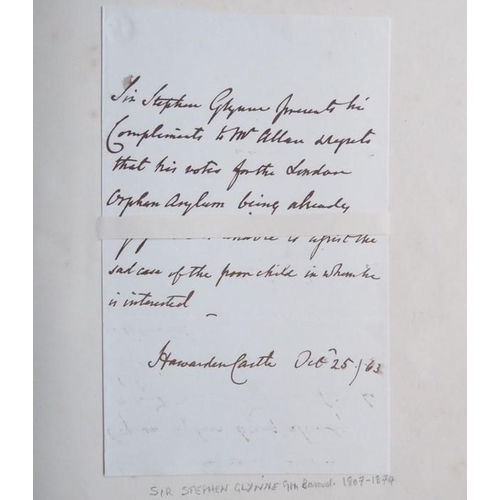 Sir Stephen Glynne presents his
Compliments to Mr Allan & regrets
that his votes for the London
Orphan Asylum being already
is assist the
sad case of the poor child in whom he
is interested
Hawarden Castle Octr 25/63
SIR STEPHEN GLYNNE 9th Baronet. 1807-1874